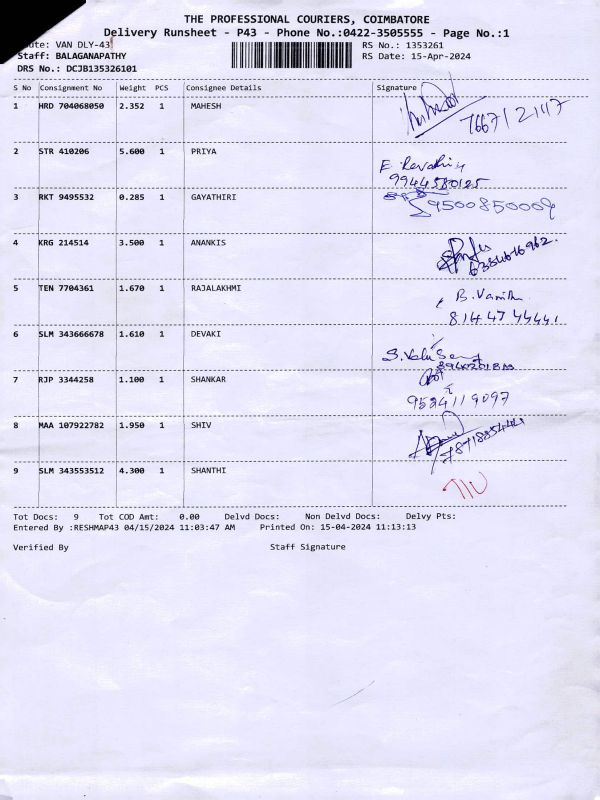 THE PROFESSIONAL COURIERS, COIMBATORE
Delivery Runsheet - P43 - Phone No.:0422-3505555 - Page No.:1
VAN DLY-43 RS No.: 1353261
Staff: BALAGANAPATHY RS Date: 15-Apr-2024
DRS No.: DCJB135326101
S No Consignment No Weight PCS Consignee Details Signature
1 HRD 704068050 2.352 1 MAHESH
766712147
2 STR 410206 5.600 1 PRIYA
E. Revathi
9944580125
3 RKT 9495532 0.285 1 GAYATHIRI
9500850009
4 KRG 214514 3.500 1 ANANKIS
5 TEN 7704361 1.670 1 RAJALAKHMI
B. Vanitha
8144744441
6 SLM 343666678 1.610 1 DEVAKI
7 RJP 3344258 1.100 1 SHANKAR
9524119097
8 MAA 107922782 1.950 1 SHIV
9 SLM 343553512 4.300 1 SHANTHI
Tot Docs: 9 Tot COD Amt: 0.00 Delvd Docs: Non Delvd Docs: Delvy Pts:
Entered By :RESHMAP43 04/15/2024 11:03:47 AM Printed On: 15-04-2024 11:13:13
Verified By Staff Signature